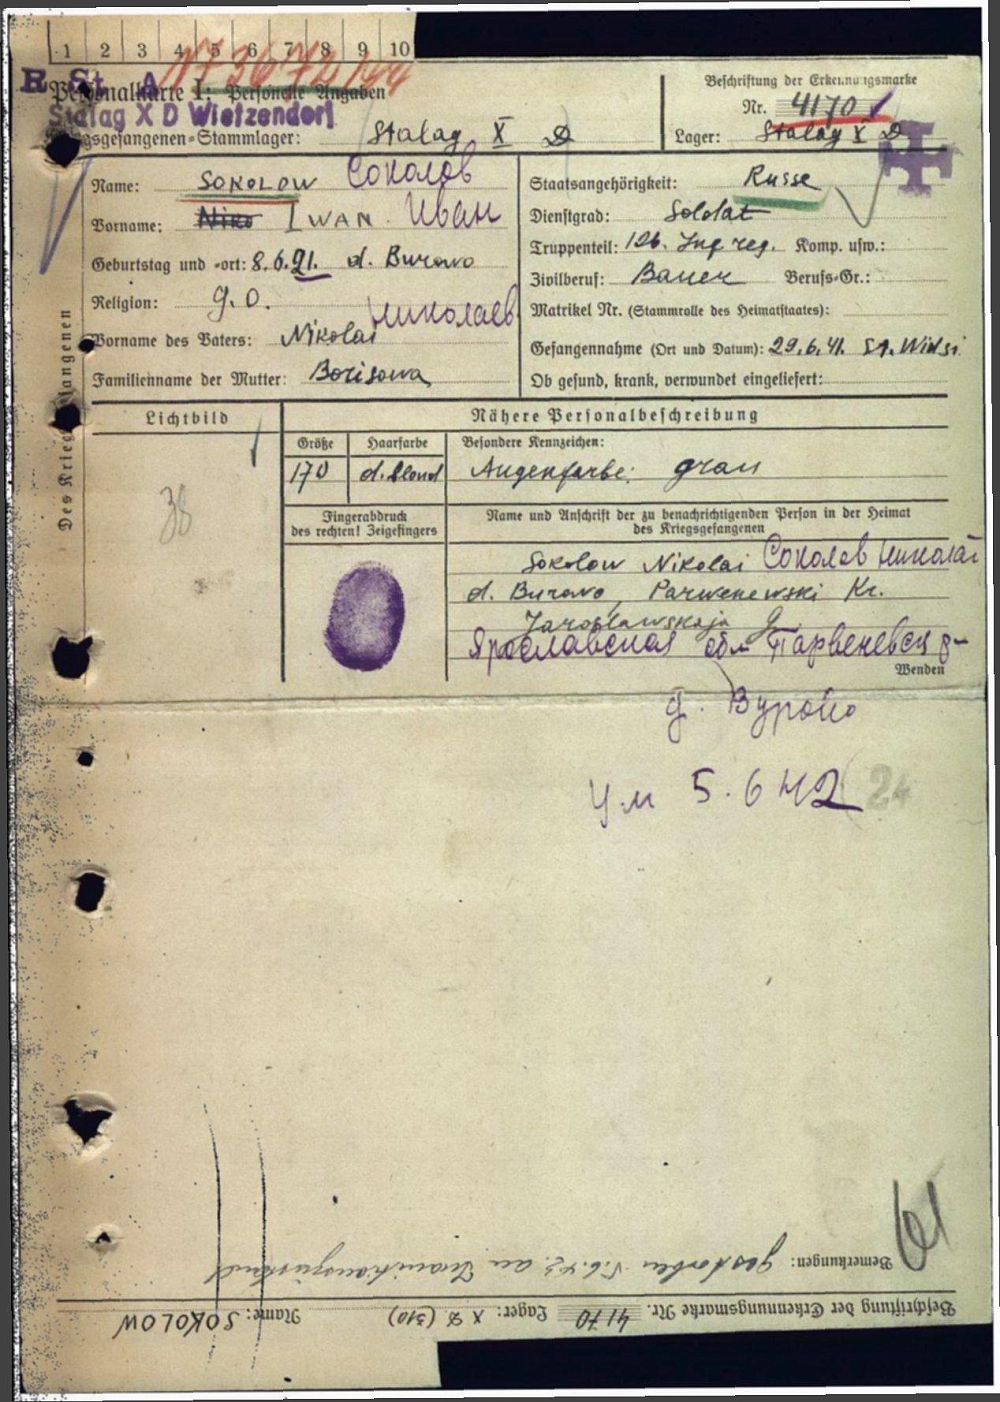 1 2 3 4 5 6 7 8 9 10
R St. A
Personalkarte I: Personelle Angaben
Stalag X D Wietzendorf
Kriegsgefangenen-Stammlager: Stalag X D
Beschriftung der Erkennungsmarke
Nr. 4170
Lager: Stalag X D
Des Kriegsgefangenen
Name: SOKOLOW Соколов
Vorname: Niko IWAN Иван
Geburtstag und -ort: 8.6.21. d. Burowo
Religion: g. O.
Николаев
Vorname des Vaters: Nikolai
Familienname der Mutter: Borisowa
Staatsangehörigkeit: Russe
Dienstgrad: Soldat
Truppenteil: 126. Komp. usw.:
Zivilberuf: Bauer Berufs-Gr.:
Matrikel Nr. (Stammrolle des Heimatstaates):
Gefangennahme (Ort und Datum): 29.6.41.
Ob gesund, krank, verwundet eingeliefert:
Lichtbild
Nähere Personalbeschreibung
Größe Haarfarbe Besondere Kennzeichen:
170 d. blond Augenfarbe: grau
38
Fingerabdruck
des rechten! Zeigefingers
Name und Anschrift der zu benachrichtigenden Person in der Heimat
des Kriegsgefangenen
Sokolow Nikolai Соколов Николай
d. Burowo, Parwenewski Kr.
Jaroslawskaja G.
Ярославская обл Парвеневск
Wenden
д. Вурово
Ум 5.6 42
24
Bemerkungen: gestorben 5.6.42 an
Beschriftung der Erkennungsmarke Nr. 4170 Lager: X D (310) Name: SOKOLOW